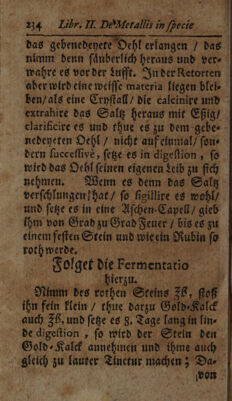 234 Libr. II. De Metallis in specie
das gebenedeyete Oehl erlangen / das
nimm denn säuberlich heraus und ver-
wahre es vor der Lufft. In der Retorten
aber wird eine weisse materia liegen blei-
ben/als eine Crystall/ die calcinire und
extrahire das Saltz heraus mit Eßig/
clarificire es und thue es zu dem gebe-
nedeyeten Oehl / nicht auf einmal/ son-
dern successivè, setze es in digestion, so
wird das Oehl seinen eigenen Leib zu sich
nehmen. Wenn es denn das Saltz
verschlungen hat/ so sigillire es wohl/
und setze es in eine Aschen-Capell/ gieb
ihm von Grad zu Grad Feuer/ bis es zu
einem festen Stein und wie ein Rubin so
roth werde.
Folget die Fermentatio
hierzu.
Nimm des rothen Steins stoß
ihn fein klein/ thue darzu Gold-Kalck
auch und setze es 8. Tage lang in lin-
de digestion, so wird der Stein den
Gold-Kalck annehmen und ihme auch
gleich zu lauter Tinctur machen; Da-
von